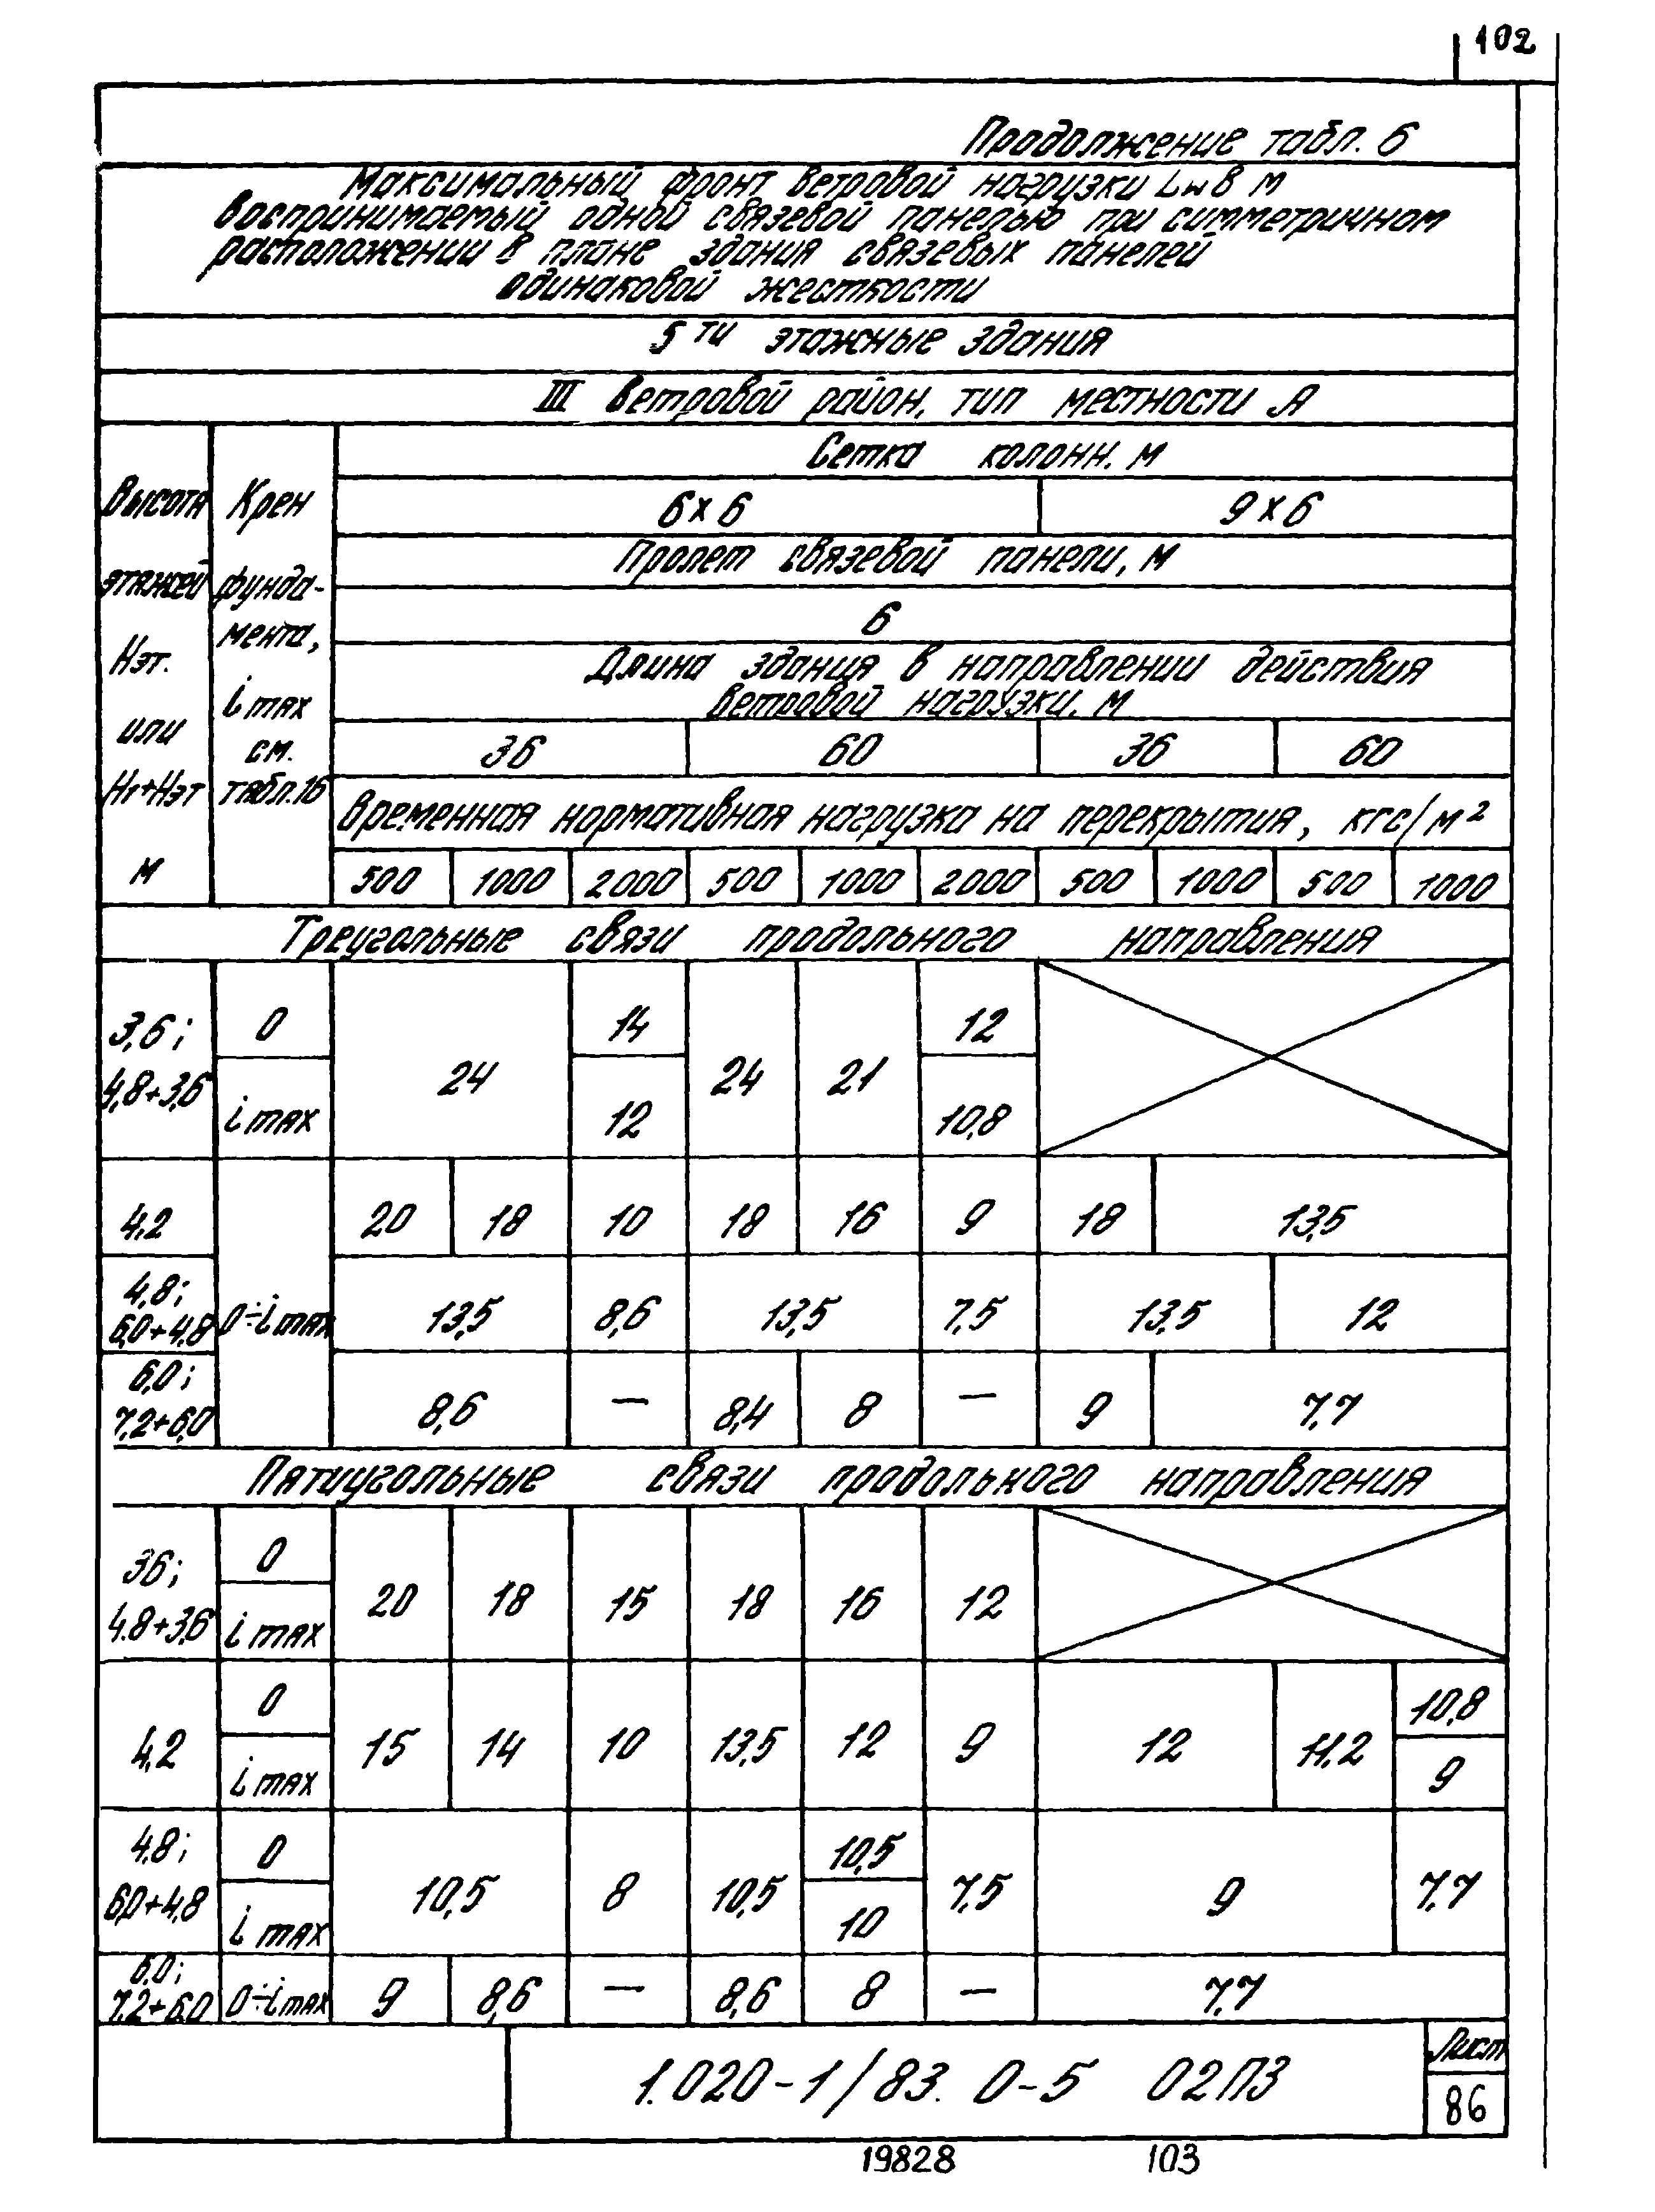 102
Продолжение табл. 6
Максимальный фронт ветровой нагрузки Lw в м
воспринимаемый одной связевой панелью при симметричном
расположении в плане здания связевых панелей
одинаковой жесткости
5ти этажные здания
III Ветровой район, тип местности А
Высота этажей Нэт. или Н1+Нэт м
Крен фунда-мента, i max см. табл.16
Сетка колонн. м
6х6 9х6
Пролет связевой панели, м
6
Длина здания в направлении действия
ветровой нагрузки. м
36 60 36 60
Временная нормативная нагрузка на перекрытия, кгс/м²
500 1000 2000 500 1000 2000 500 1000 500 1000
Треугольные связи продольного направления
3,6; 0 14 12
24 24 21
4,8+3,6 i max 12 10,8
4,2 20 18 10 18 16 9 18 13,5
4,8;
6,0+4,8 0÷i max 13,5 8,6 13,5 7,5 13,5 12
6,0;
7,2+6,0 8,6 — 8,4 8 — 9 7,7
Пятиугольные связи продольного направления
36; 0
20 18 15 18 16 12
4.8+3,6 i max
0 10,8
4,2 15 14 10 13,5 12 9 12 11,2
i max 9
4,8; 0 10,5
6,0+4,8 10,5 8 10,5 7,5 9 7,7
i max 10
6,0;
7.2+6.0 0÷i max 9 8,6 — 8,6 8 — 7,7
1.020-1/83. 0-5 02ПЗ
Лист
86
19828 103